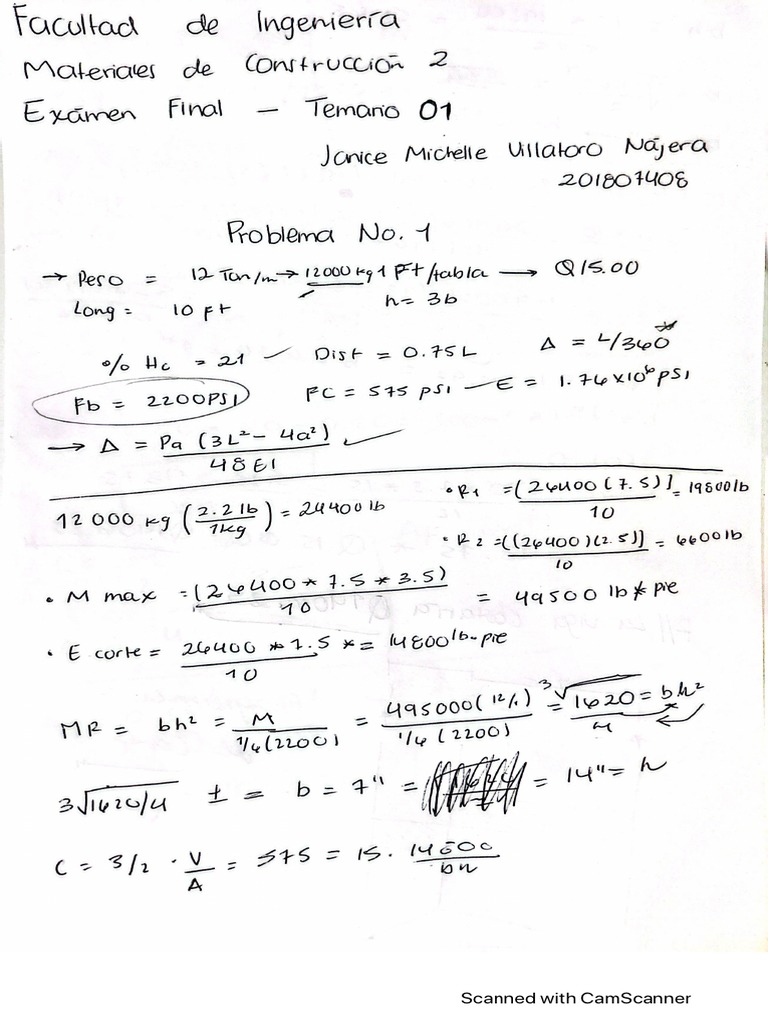 Facultad de Ingeniería
Materiales de Construcción 2
Exámen Final - Temario 01
Janice Michelle Villatoro Nájera
201807408
Problema No. 1
→ Peso = 12 Ton/m → 12000 kg 1 Ft/tabla → Q15.00
Long = 10 Ft h = 3b
% Hc = 21 Dist = 0.75L Δ = L/360
Fb = 2200PSI FC = 575 PSI - E = 1.76x10⁶ PSI
→ Δ = Pa (3L² - 4a²) / 48EI
12 000 kg (2.2 lb / 1kg) = 24400 lb
• R1 = (26400(7.5)) / 10 = 19800 lb
• R2 = ((26400)(2.5)) / 10 = 6600 lb
• M max = (26400 * 7.5 * 3.5) / 10 = 49500 lb * pie
• E corte = 26400 * 7.5 * / 10 = 14800 lb-pie
MR = bh² = M / 1/6(2200) = 495000(12/1) / 1/6(2200) = ³√1620 = bh² / 4
3√1620/4 ± = b = 7" = = 14" = h
C = 3/2 · V/A = 575 = 15 · 14800 / bh
Scanned with CamScanner